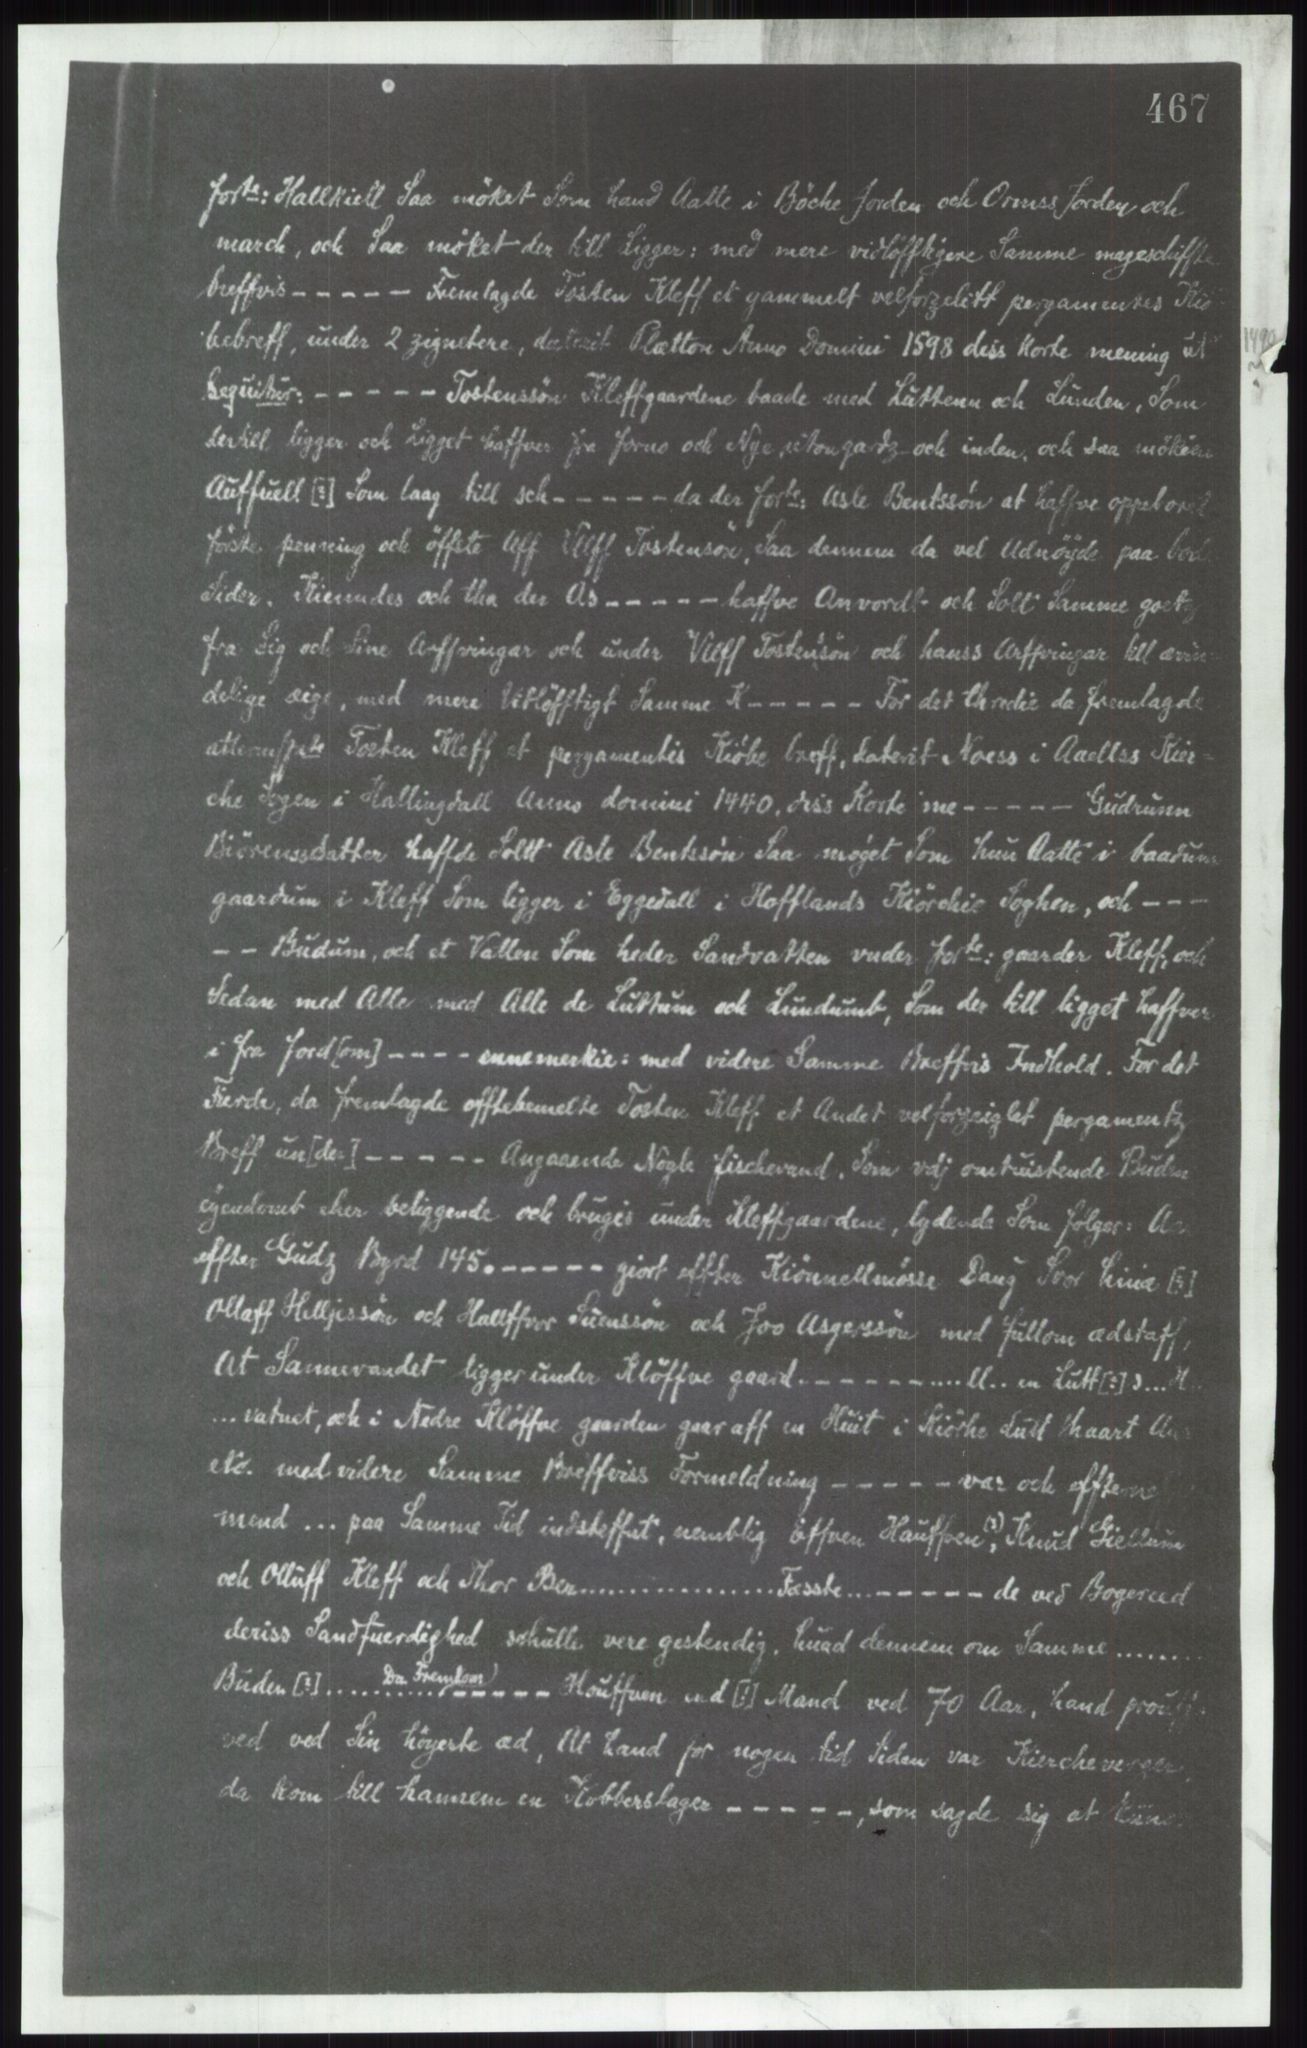 467
forte: Hallkiell Saa möket Som hand Aatte i Böche Jorden och Ormss Jorden och
march, och Saa möket der till Ligger: med mere vidlöfftigere Samme mageschiffte
breffvis ----- Fremlagde Tosten Kleff et gammelt velforzelitt pergamentes Kiö
bebreff, under 2 zignetere, daterit Plætton Anno Domini 1598 diss korte mening ut
1490
Sequitur: ----- Tostenssön Kleffgaardene baade med Luttenn och Lunden, Som
dertill ligger och Ligget haffver fra forno och Nye, utongardz och inden, och saa möken
Auffuell [?] Som laag till sch ----- da der forte: Asle Bentssön at haffve oppeboret
förste penning och öffste Aff Ulff Tostensön, Saa dennem da vel Udnöyde paa
Sider. Kiemdes och tha der As ----- haffve Anvordt och Solt Samme goetz
fra Sig och Sine Arffvingar och under Ulff Tostensön och hanss Arffvingar till ævin-
delige eige, med mere Vitlöfftigt Samme K ----- For det thredie da fremlagde
atternffte Tosten Kleff et pergamentis Kiöbe breff, daterit Noess i Aaellss Kier-
che Sogen i Hallingdall Anno domini 1440, diss Korte me ----- Gudrunn
Biörenssdatter haffde Soltt Asle Bentssön Saa möget Som hun Aatte i baadum
gaardum i Kleff Som ligger i Eggedall i Hofflands Kiörchie Soghen, och ---
-- Budum, och et Vatten Som heder Sandvatten vnder forte: gaarder Kleff, och
Sedan med Alle med Alle de Luttum och Lundumb, Som der till ligget haffver
i fra ford[om] ---- ennemerkie: med videre Samme Breffvis Indhold. For det
Fierde, da fremlagde offtebemelte Tosten Kleff et Andet velforzeiglet pergamentz
Breff un[der] ----- Angaaende Nogle fischevand, Som vdj omtuistende Buden
eyendomb eher beliggende och brugis under Kleffgaardene, lydende Som følger:
effter Gudz Byrd 145. ----- giort effter Kiönnellmösse Dang Svor hinia [?]
Ollaff Helljessön och Hallffvor Suenssön och Joo Asgerssön med fullom ædstaff,
At Sannevandet ligger under Klöffve gaard. ------- .... ll.. en Lutt [?] s... H..
... vatnet, och i Nedre Klöffve gaarden gaar aff en Huit i Kiörke Lutt huart
etc. med videre Samme Breffviss Formeldning ----- var och effterne
mend ... paa Samme Tid indsteffnt, nemblig Offven Hauffven [?], Knud Giellum
och Olluff Kleff och Thor Ben ................ Fæsste ... ----- de ved Bogereed
deriss Sandfuerdighed schulle vere gestendig, huad dennem om Samme ........
Buden [?] .......... Da Fremkom ----- Houffven end [?] Mand ved 70 Aar, hand
ved ved Sin högeste æd, At hand for nogen tid Siden var Kiercheverger,
da kom till hannem en Kobberslager -----, som sagde sig at